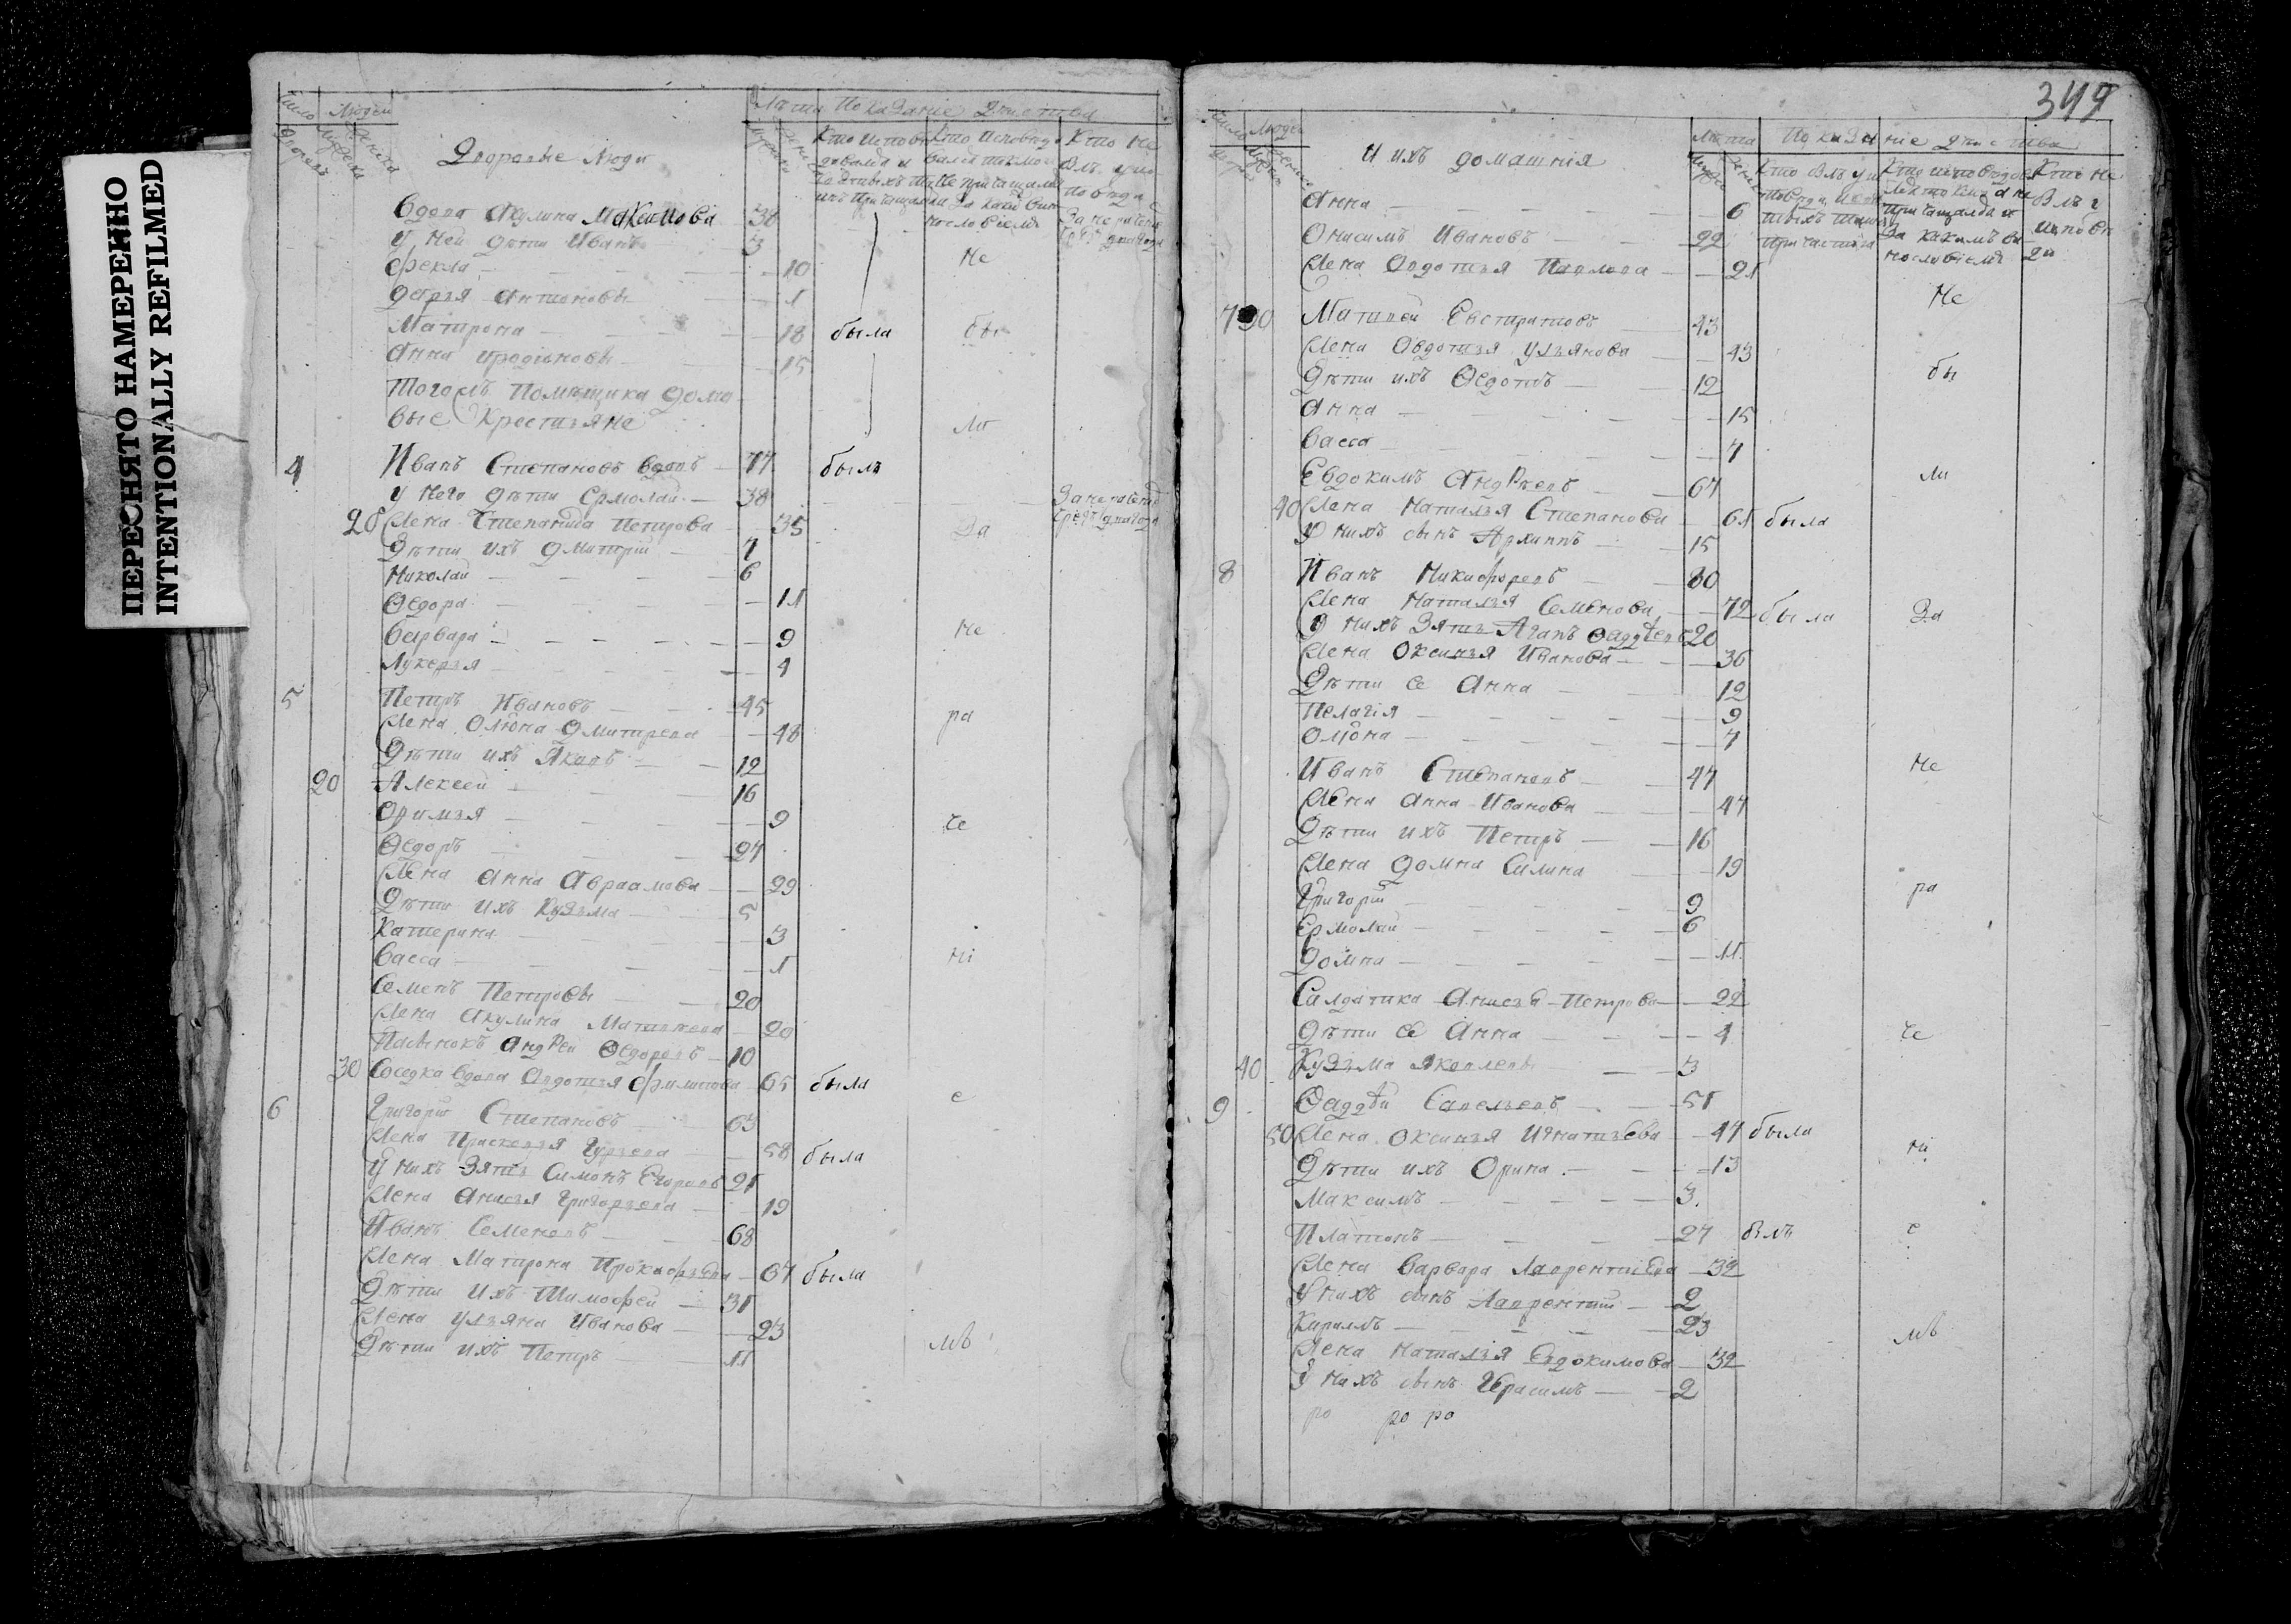 ПЕРЕСНЯТО НАМЕРЕННО
INTENTIONALLY REFILMED
Число Людей Лѣта Показаніе Действа
Дворовые Люди
Вдова Акулина Максимова 38
У ней дѣти Иванъ 3
Фекла 10 Не
Дарья Антоновы 1
Матрона 18 была бы
Анна Иродіоновы 15
Тогожъ Помѣщика домо
вые Крестьяне ло
4 Иванъ Степановъ вдовъ 77 былъ
У него дѣти Ермолай 38
20 Жена Степанида Петрова 35 За
Дѣти ихъ Дмитрій 7
Николай 6
Ѳедора 11
Варвара 9 Не
Лукерья 4
5 Петръ Ивановъ 45
Жена Олѣона Дмитрева 48 ра
Дѣти ихъ Яковъ 12
20 Алексей 16
Орина 9 че
Ѳедоръ 27
Жена Анна Авраамова 29
Дѣти ихъ Кузьма 5
Катерина 3
Васса 1 ні
Семенъ Петровы 20
Жена Акулина Матвѣева 20
Пасынокъ Андрей Ѳедоровъ 10
30 Соседка вдова Овдотья Филипова 65 была
6 Григорій Степановъ 63 е
Жена Прасковья Гурьева 58 была
У нихъ Зять Симонъ Егоровъ 21
Жена Анисья Григорьева 19
Иванъ Семеновъ 68
Жена Матрона Прокофьева 67 была
Дѣти ихъ Тимофей 31
Жена Ульяна Иванова 23
Дѣти ихъ Петръ 11 мъ
349
И ихъ домашнія
Лѣта Показаніе действа
Анна 6
Онисимъ Ивановъ 22
Жена Овдотья Павлова 21
Не
7 30 Матвей Евстратовъ 43
Жена Овдотья Ульянова 43
Дѣти ихъ Ѳедотъ 12 бы
Анна 15
Васса 7
Евдокимъ Андреевъ 67 ли
40 Жена Наталья Степанова 61 была
У нихъ сынъ Архипъ 15
8 Иванъ Никифоровъ 80
Жена Наталья Семенова 72 была За
У нихъ Зять Агапъ Ѳаддѣевъ 20
Жена Оксинья Иванова 36
Дѣти ее Анна 12
Пелагія 9
Олѣона 7
Иванъ Степановъ 47 Не
Жена Анна Иванова 47
Дѣти ихъ Петръ 16
Жена Домна Силина 19
Григорій 9 ра
Ермолай 6
Домна 11
Салдатка Анисья Петрова 22
Дѣти ее Анна 4 че
40 Кузьма Яковлевы 3
9 Ѳаддѣй Савельевъ 51
50 Жена Оксинья Игнатьева 47 была
Дѣти ихъ Орина 13 ні
Максимъ 3
Платонъ 27 былъ е
Жена Варвара Лаврентіева 32
У нихъ сынъ Лаврентій 2
Кирилъ 23 мъ
Жена Наталья Евдокимова 32
У нихъ сынъ Герасимъ 2
ро ро ро